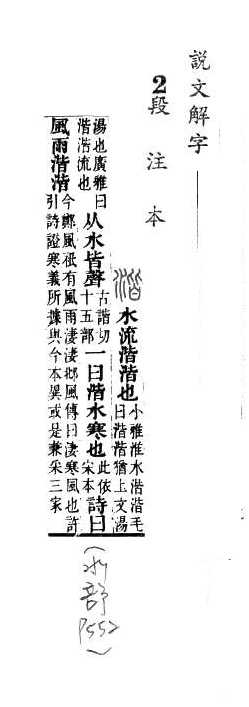 説文解字
2段注本
湝 水流湝湝也 小雅淮水湝湝毛
曰湝湝猶上文湯
湯也廣雅曰
湝湝流也 从水皆聲 古諧切
十五部 一曰湝水寒也 此依
宋本 詩曰
風雨湝湝 今鄭風祗有風雨淒淒邶風傳曰淒寒風也許
引詩證寒義所據與今本異或是兼采三家
(水部 P552)